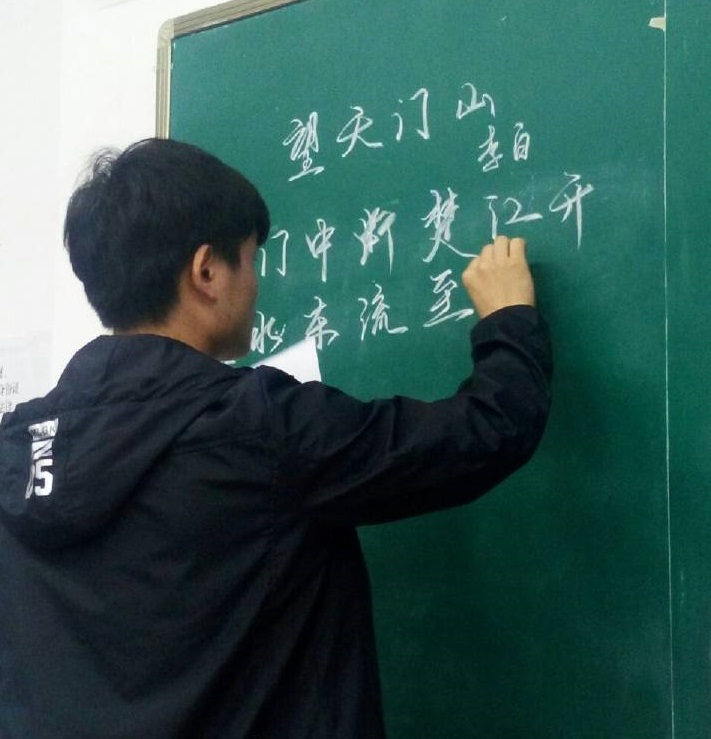 望天门山
李白
门中断楚江开
水东流至
25